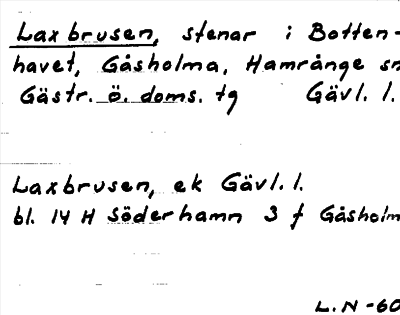 Laxbrusen, stenar i Botten-
havet, Gåsholma, Hamrånge sn
Gästr. ö. doms. tg Gävl. l.
Laxbrusen, ek Gävl. l.
bl. 14 H Söderhamn 3 f Gåsholm
L. N -60